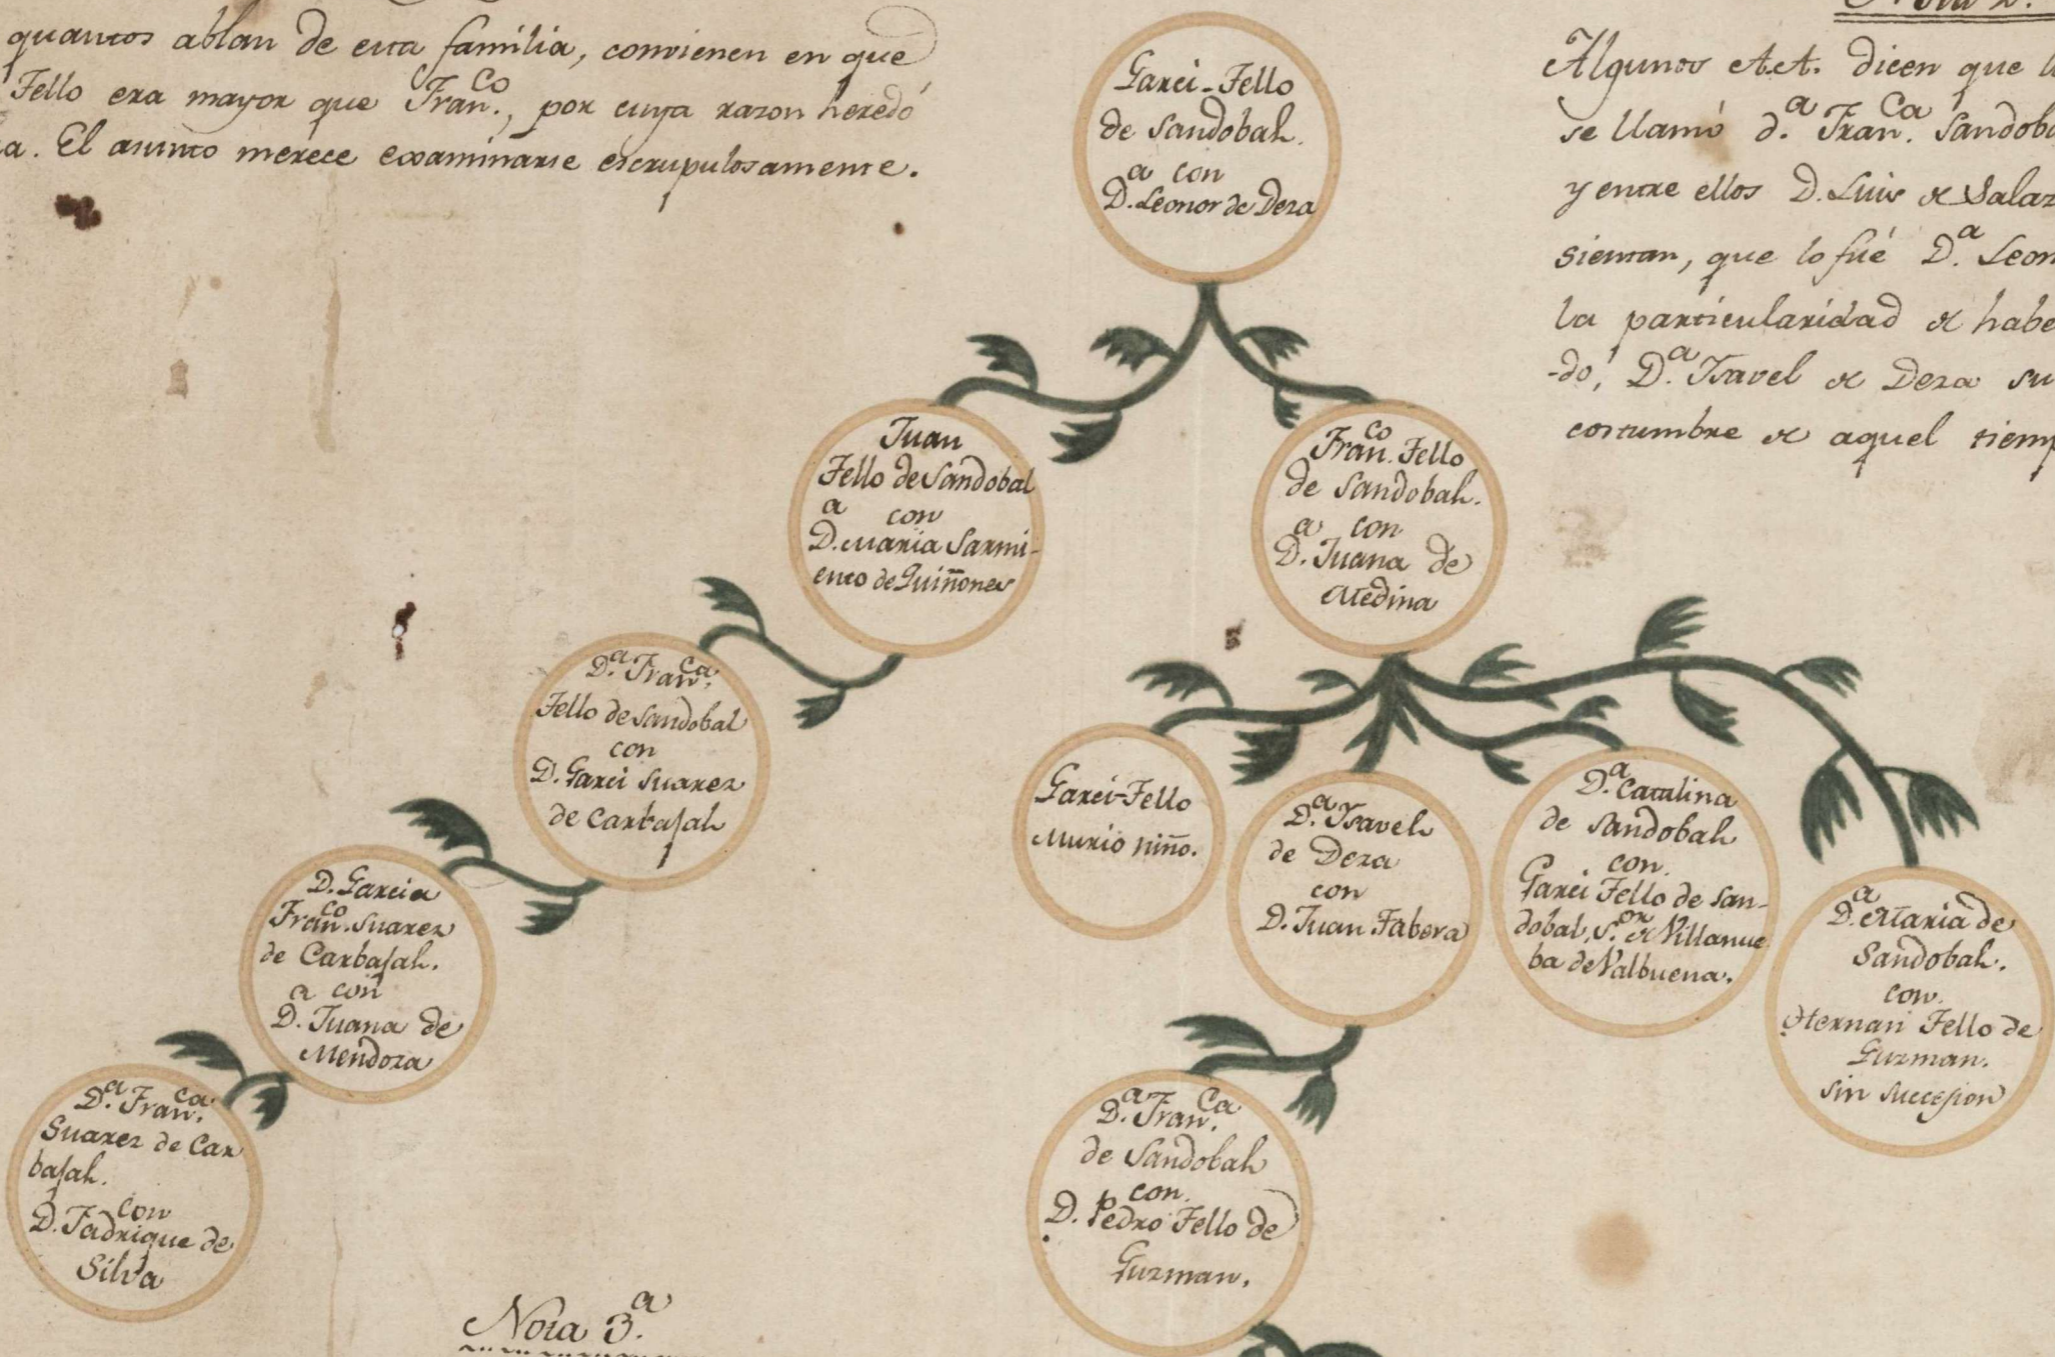 quantos ablan de esta familia, convienen en que
Tello era mayor que Fran.co, por cuya razon heredó
a. El asunto merece examinarse escrupulosamente.
Nota 2.
Algunos A.A. dicen que l
se llamó d.a Fran.ca Sandoba
y entre ellos D. Luis de Salaz
sientan, que lo fué D.a Leon
la particularidad de habe
-do, D.a Isavel de Deza su
costumbre de aquel tiemp
Garci-Tello
de Sandobal.
con
D.a Leonor de Deza
Juan
Tello de Sandobal
con
D.a Maria Sarmi-
ento de Quiñones
Fran.co Tello
de Sandobal.
con
D.a Juana de
Medina
D.a Fran.ca
Tello de Sandobal
con
D. Garci Suarez
de Carbajal
Garci-Tello
Murió niño.
D.a Ysavel
de Deza
con
D. Juan Tabera
D.a Catalina
de Sandobal
con.
Garci Tello de San-
dobal, S.or de Villanue
ba de Valbuena.
D.a Maria de
Sandobal.
con.
Hernan Tello de
Guzman.
sin succesion
D. Garcia
Fran.co Suarez
de Carbajal.
con
D.a Juana de
Mendoza
D.a Fran.ca
Suarez de Car
bajal.
con
D. Fadrique de
Silva
D.a Fran.ca
de Sandobal
con.
D. Pedro Tello de
Guzman.
Nota 3.a